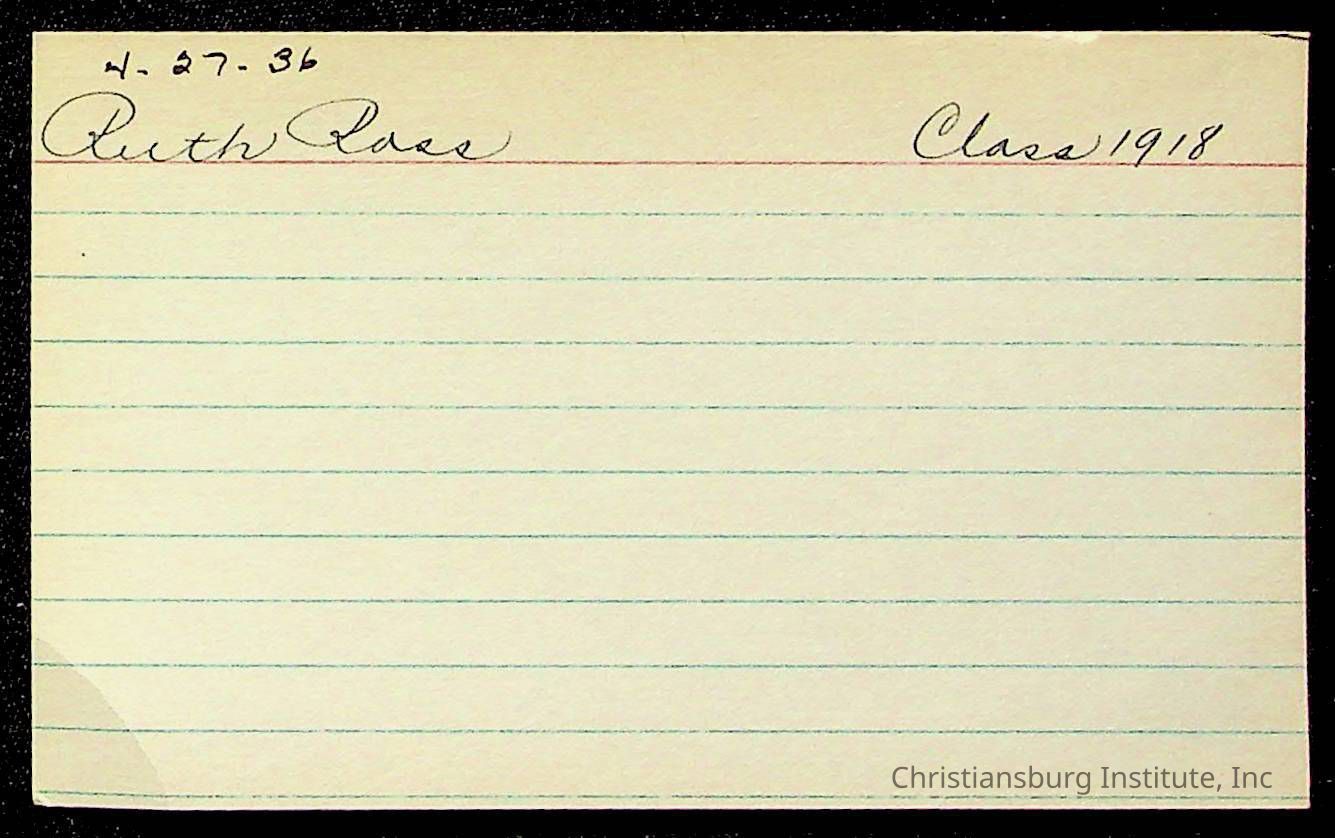 4-27-36
Ruth Ross Class 1918
Christiansburg Institute, Inc